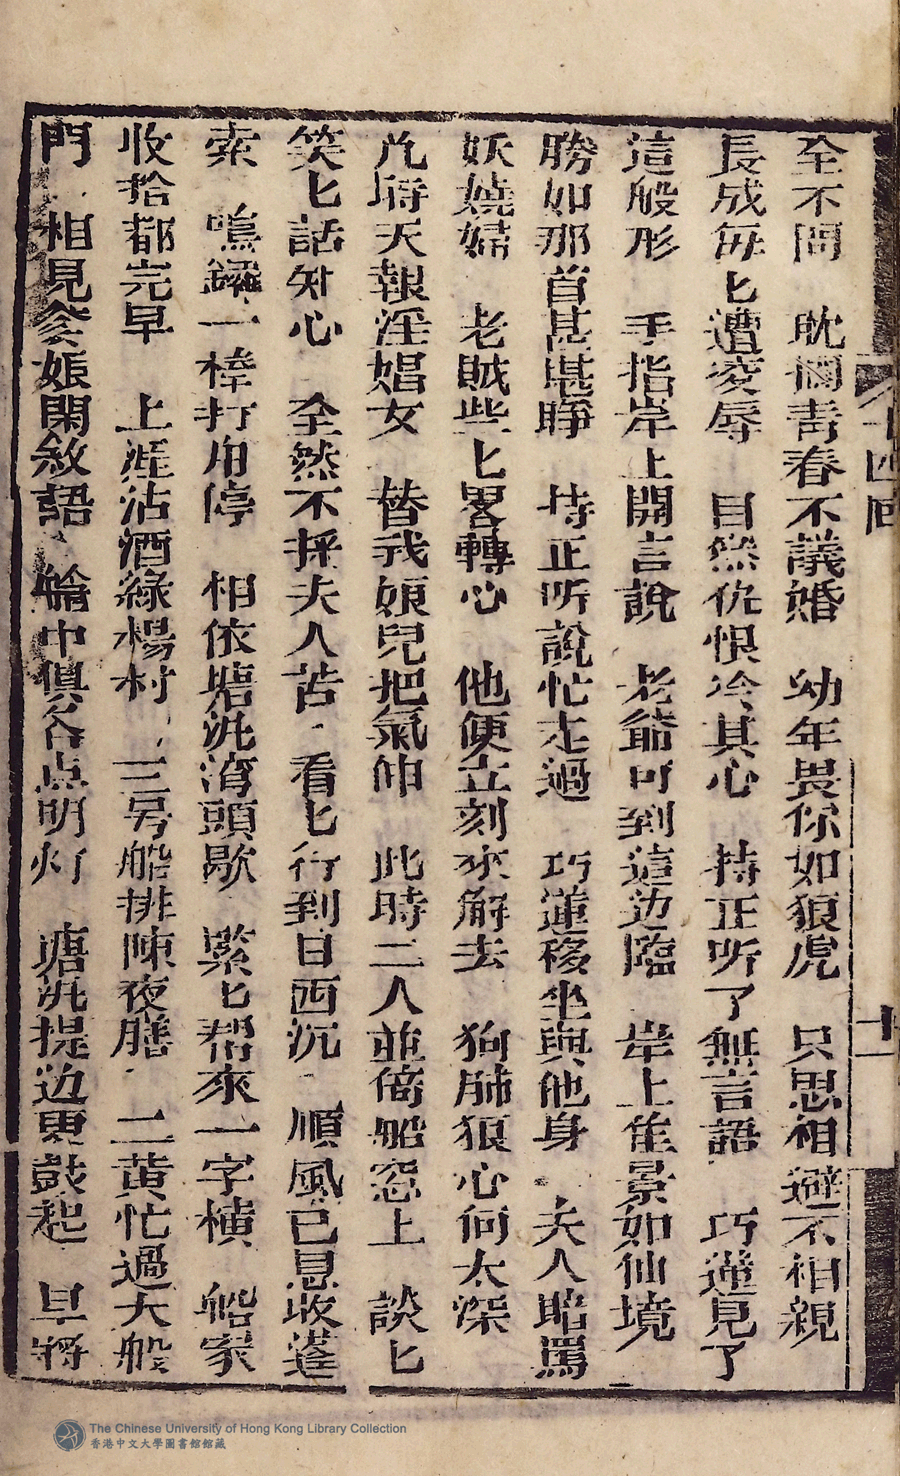 十四回
十一
全不問　耽擱青春不議婚　幼年畏你如狼虎　只思相避不相親
長成每匕遭凌辱　目然仇恨冷其心　持正听了無言語　巧蓮見了
這般形　手指岸上開言說　老爺可到這边臨　岸上隹景如仙境
勝如那首甚堪睁　持正听說忙走過　巧蓮移坐與他身　夫人暗罵
妖嬈婦　老賊些匕畧轉心　他便立刻來解去　狗肺狠心何太深
凢時天報淫娼女　替我娘兒把氣伸　此時二人並倚船窓上　談匕
笑匕話知心　全然不採夫人苦　看匕行到日西沉　順風已息收蓬
索　鳴鑼一棒打舟停　相依塘汛湾頭歇　緊匕帮來一字横　船家
收拾都完早　上涯沽酒綠楊村　三号船排陳夜膳　二黄忙過大船
門　相見爹娘閑敘語　艙中俱各点明灯　塘汛提边更鼓起　早將
The Chinese University of Hong Kong Library Collection
香港中文大學圖書館館藏